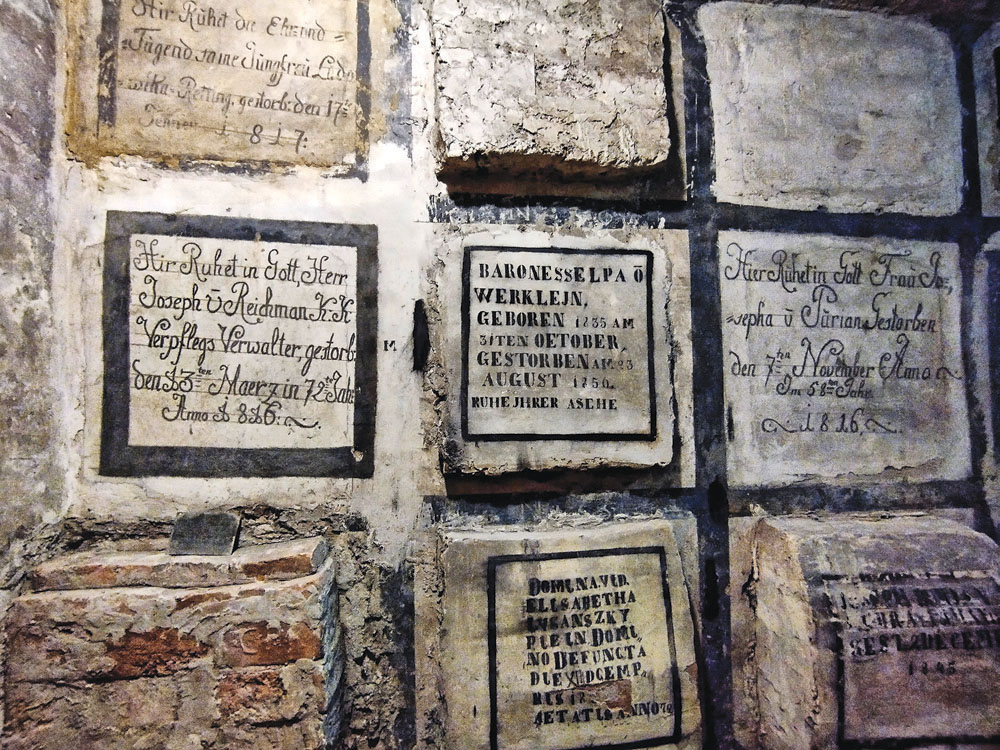 Hir Ruhet die Ehr und =
Tugend same Jungfrau Ludo
wika Retting, gestorb: den 17te
Jenner 1817:
Hir Ruhet in Gott, Herr
Joseph v̄ Reichman K:K
Verpflegs Verwalter, gestorb:
den 13ten Maerz in 72te Jahr
Anno 1816.
M
BARONESSE LPA Ū
WERKLEJN,
GEBOREN 1835 AM
31TEN OETOBER,
GESTORBEN AM 23
AUGUST 1850.
RUHE JHRER ASEHE
Hier Ruhet in Gott Frau Jo=,
=sepha v̄ Pürian Gestorben
den 7ten November Anno
Im 58ten Jahr
1816,
DOMINA VID.
ELISABETHA
LUSANSZKY
PIE IN DOMI,
NO DEFUNCTA
DIE XI DCEMP,
RIS
AETATIS ANNO 72
GEST 2 DECEM